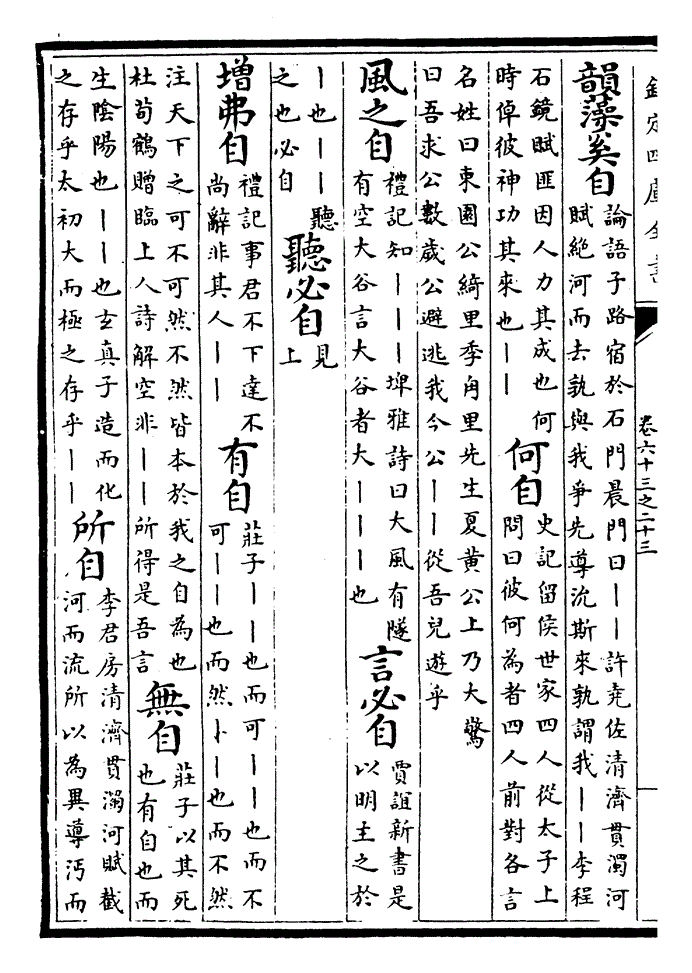 欽定四庫全書
卷六十三之二十三
韻藻奚自
論語子路宿於石門晨門曰丨丨許堯佐清濟貫濁河
賦絶河而去孰與我爭先導流斯來孰謂我丨丨李程
石鏡賦匪因人力其成也何
時倬彼神功其來也丨丨
何自
史記留侯世家四人從太子上
問曰彼何為者四人前對各言
名姓曰東園公綺里季甪里先生夏黄公上乃大驚
曰吾求公數歲公避逃我今公丨丨從吾兒遊乎
風之自
禮記知丨丨丨埤雅詩曰大風有隧
有空大谷言大谷者大丨丨丨也
言必自
賈誼新書是
以明主之於
丨也丨丨丨聽
之也必自
聽必自
見
上
增弗自
禮記事君不下達不
尚辭非其人丨丨
有自
莊子丨丨也而可丨丨也而不
可丨丨也而然丨丨也而不然
注天下之可不可然不然皆本於我之自為也
杜荀鶴贈臨上人詩解空非丨丨所得是吾言
無自
莊子以其死
也有自也而
生陰陽也丨丨也玄真子造而化
之存乎太初大而極之存乎丨丨
所自
李君房清濟貫濁河賦截
河而流所以為異導沔而